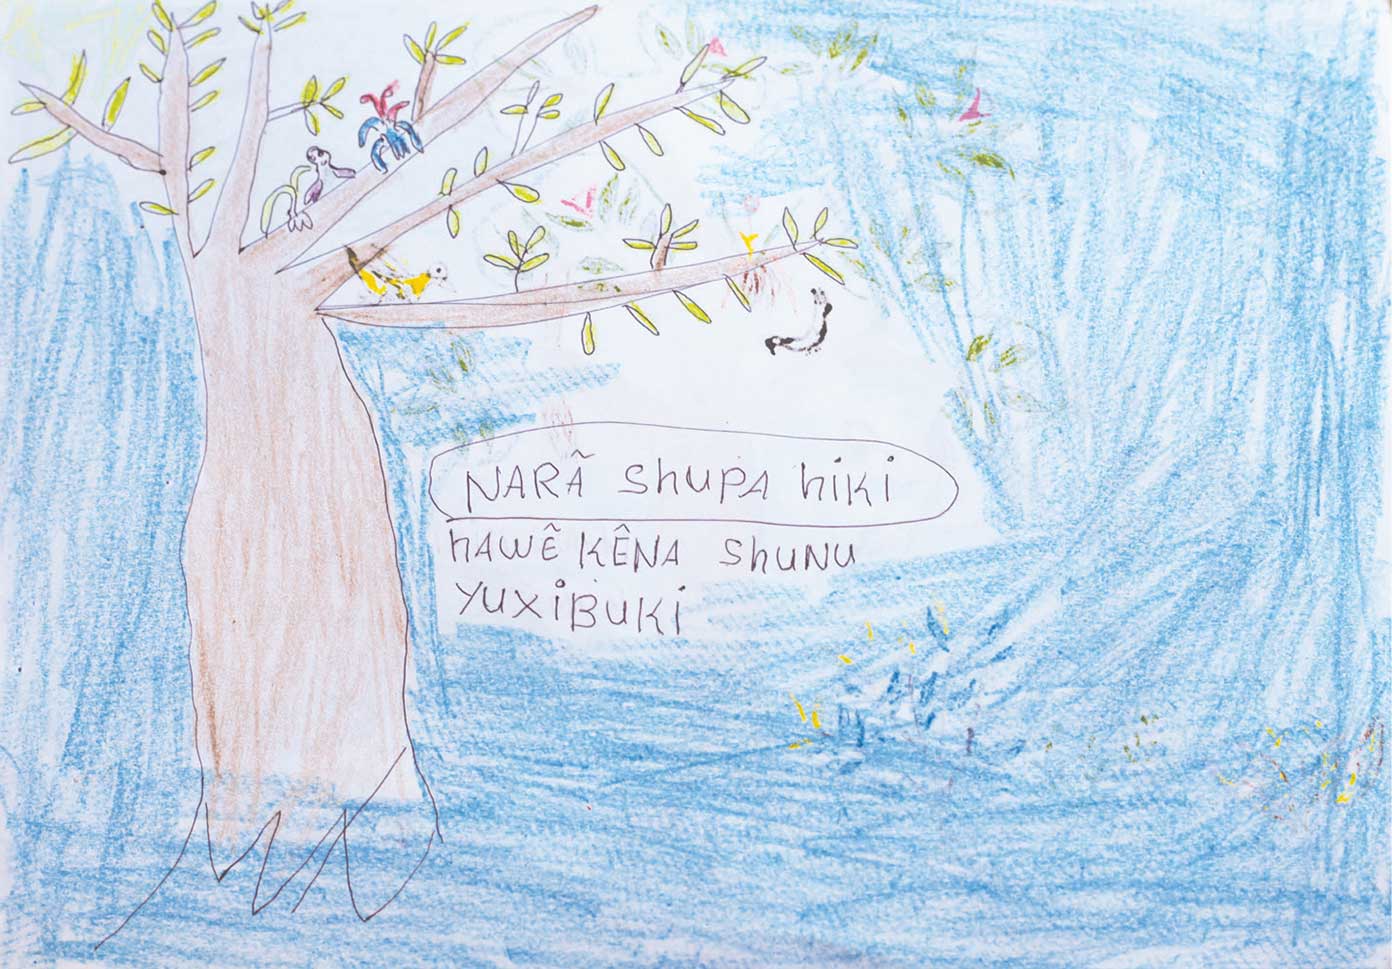 NARÃ ShUPA hiKi
hAWÊ KÊNA ShUNU
YUXiBUKi